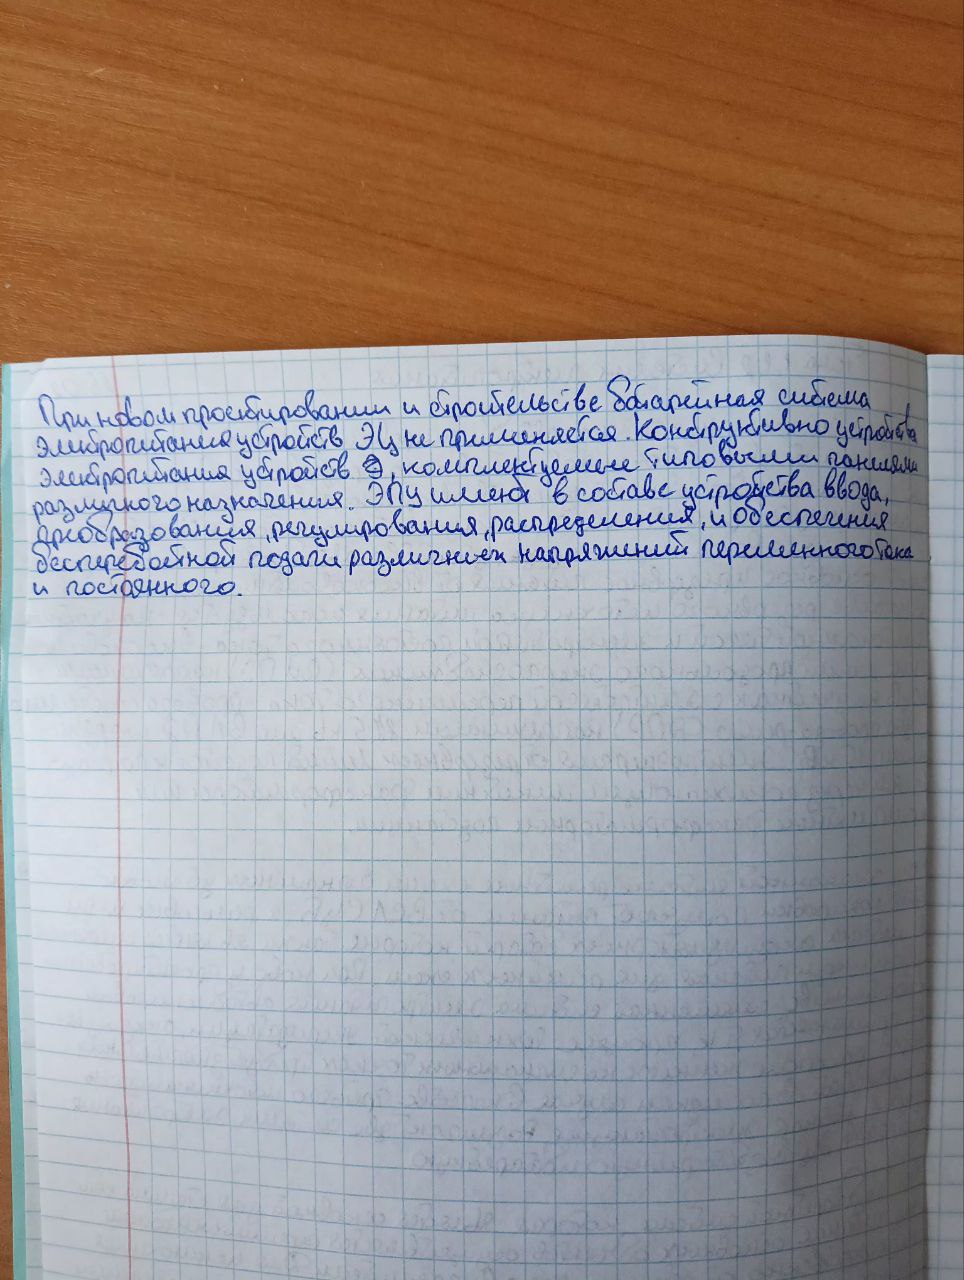 При новом проектировании и строительстве батарейная система
электропитания устройств ЭЦ не применяется. Конструктивно устройства
электропитания устройств Э, комплектуемые типовыми панелями
различного назначения. ЭПУ имеют в составе устройства ввода,
преобразования, регулирования, распределения, и обеспечения
бесперебойной подачи различных напряжений переменного тока
и постоянного.